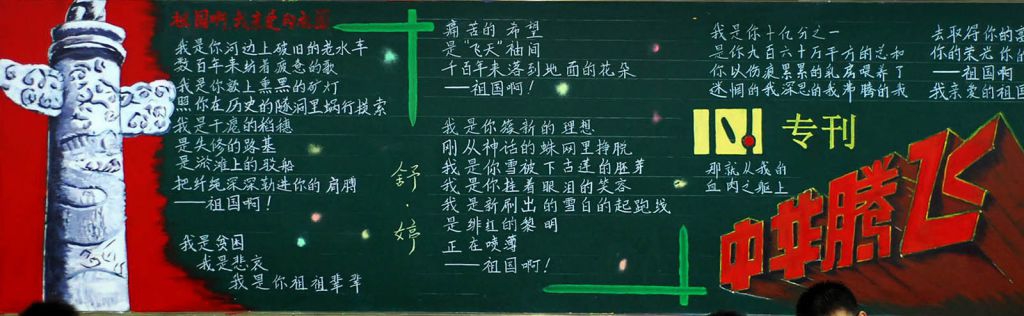 祖国啊我亲爱的祖国
我是你河边上破旧的老水车
数百年来纺着疲惫的歌
我是你额上熏黑的矿灯
照你在历史的隧洞里蜗行摸索
我是干瘪的稻穗
是失修的路基
是淤滩上的驳船
把纤绳深深勒进你的肩膊
——祖国啊!
我是贫困
我是悲哀
我是你祖祖辈辈
舒·婷
痛苦的希望
是“飞天”袖间
千百年来落到地面的花朵
——祖国啊!
我是你簇新的理想
刚从神话的蛛网里挣脱
我是你雪被下古莲的胚芽
我是你挂着眼泪的笑容
我是新刷出的雪白的起跑线
是绯红的黎明
正在喷薄
——祖国啊!
我是你十亿分之一
是你九百六十万平方的总和
你以伤痕累累的乳房喂养了
迷惘的我深思的我沸腾的我
那就从我的
血肉之躯上
去取得你的
你的荣光 你的
——祖国啊
我亲爱的祖国
专刊
中华腾飞